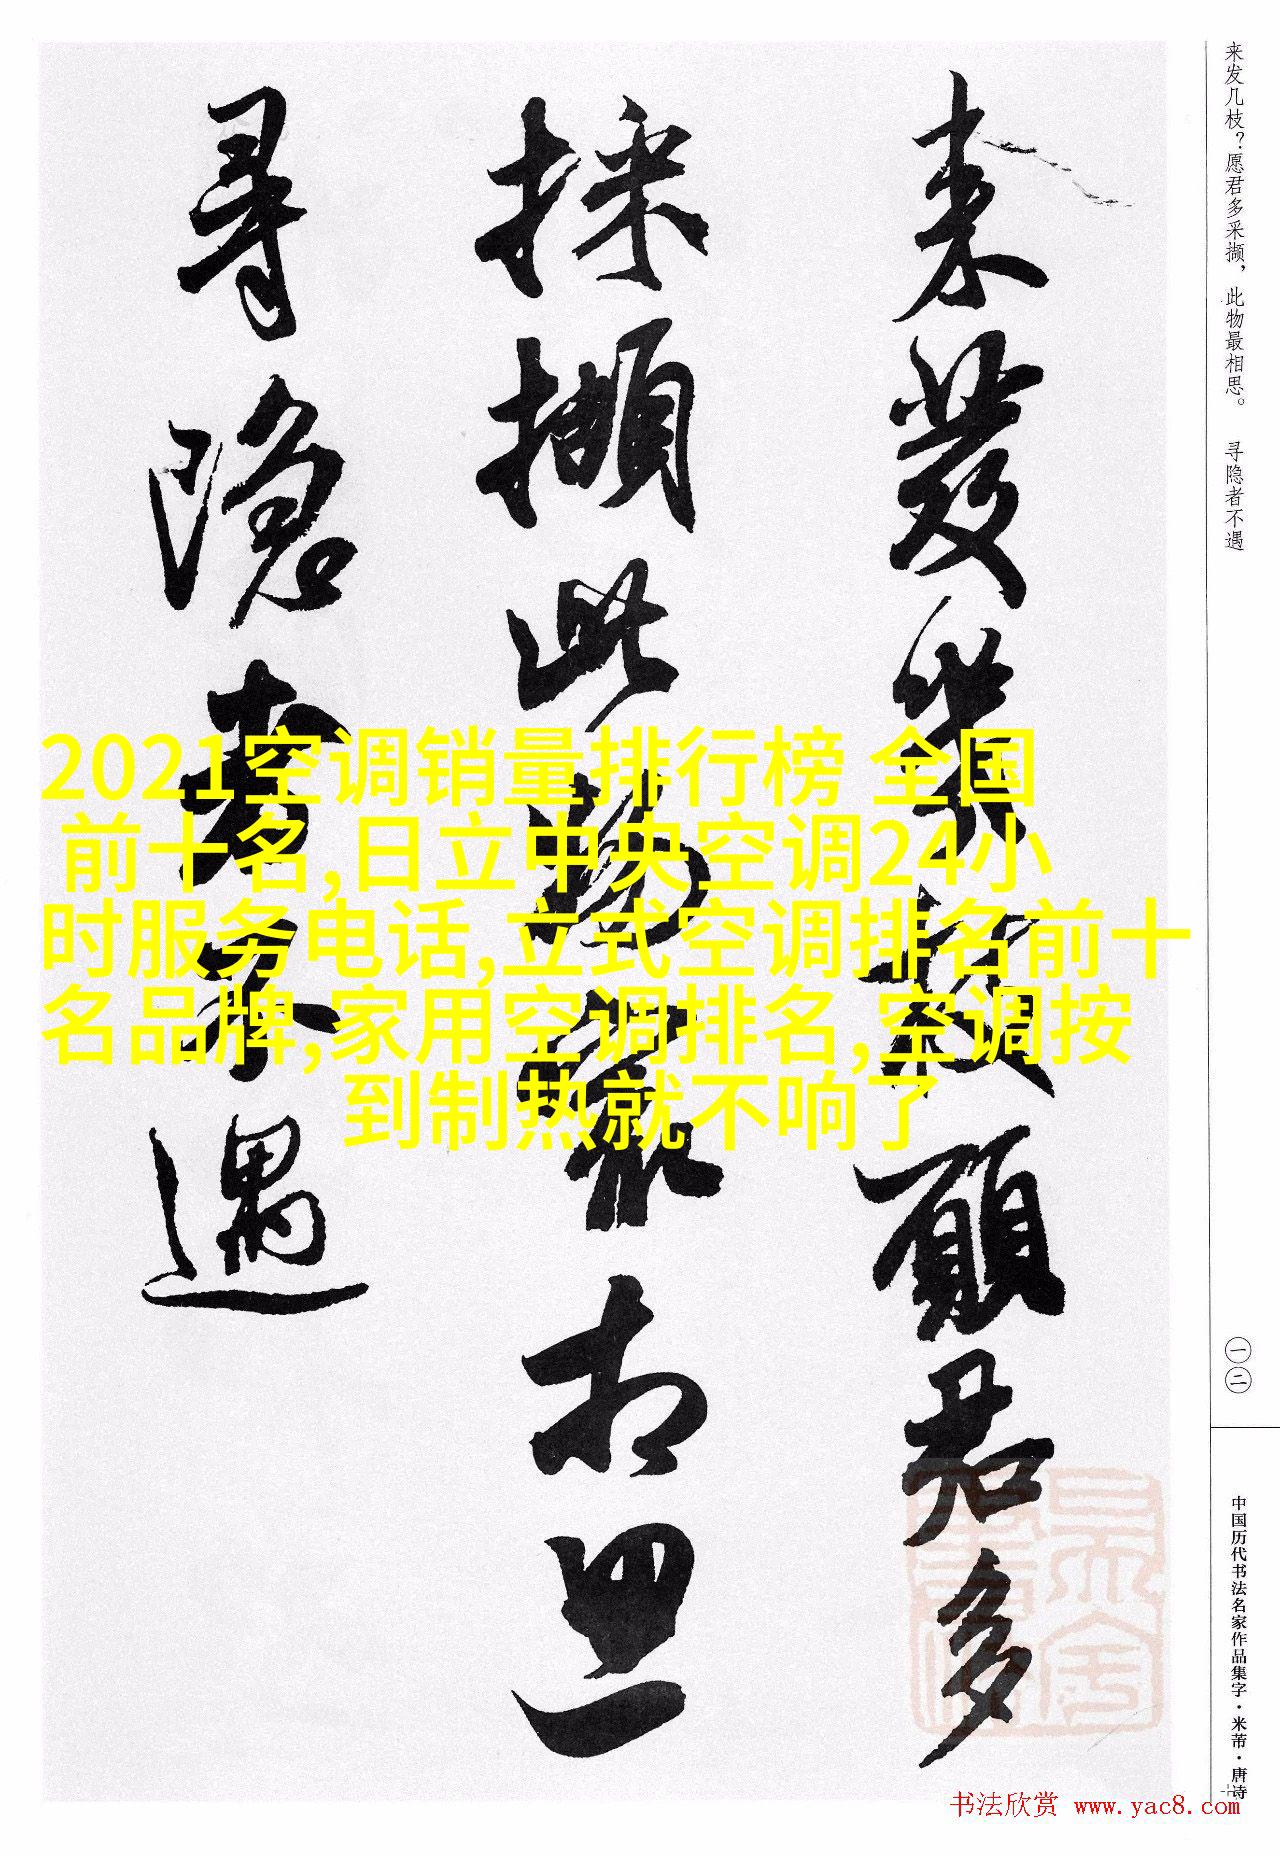 来发几枝？愿君多采撷，此物最相思。 寻隐者不遇
来發幾枝願君多
採擷此物最相思
尋隱者不遇
2021空调销量排行榜 全国
前十名,日立中央空调24小
时服务电话,立式空调排名前十
名品牌,家用空调排名,空调按
到制热就不响了
一二
中国历代书法名家作品集字·米芾·唐诗
书法欣赏 www.yac8.com